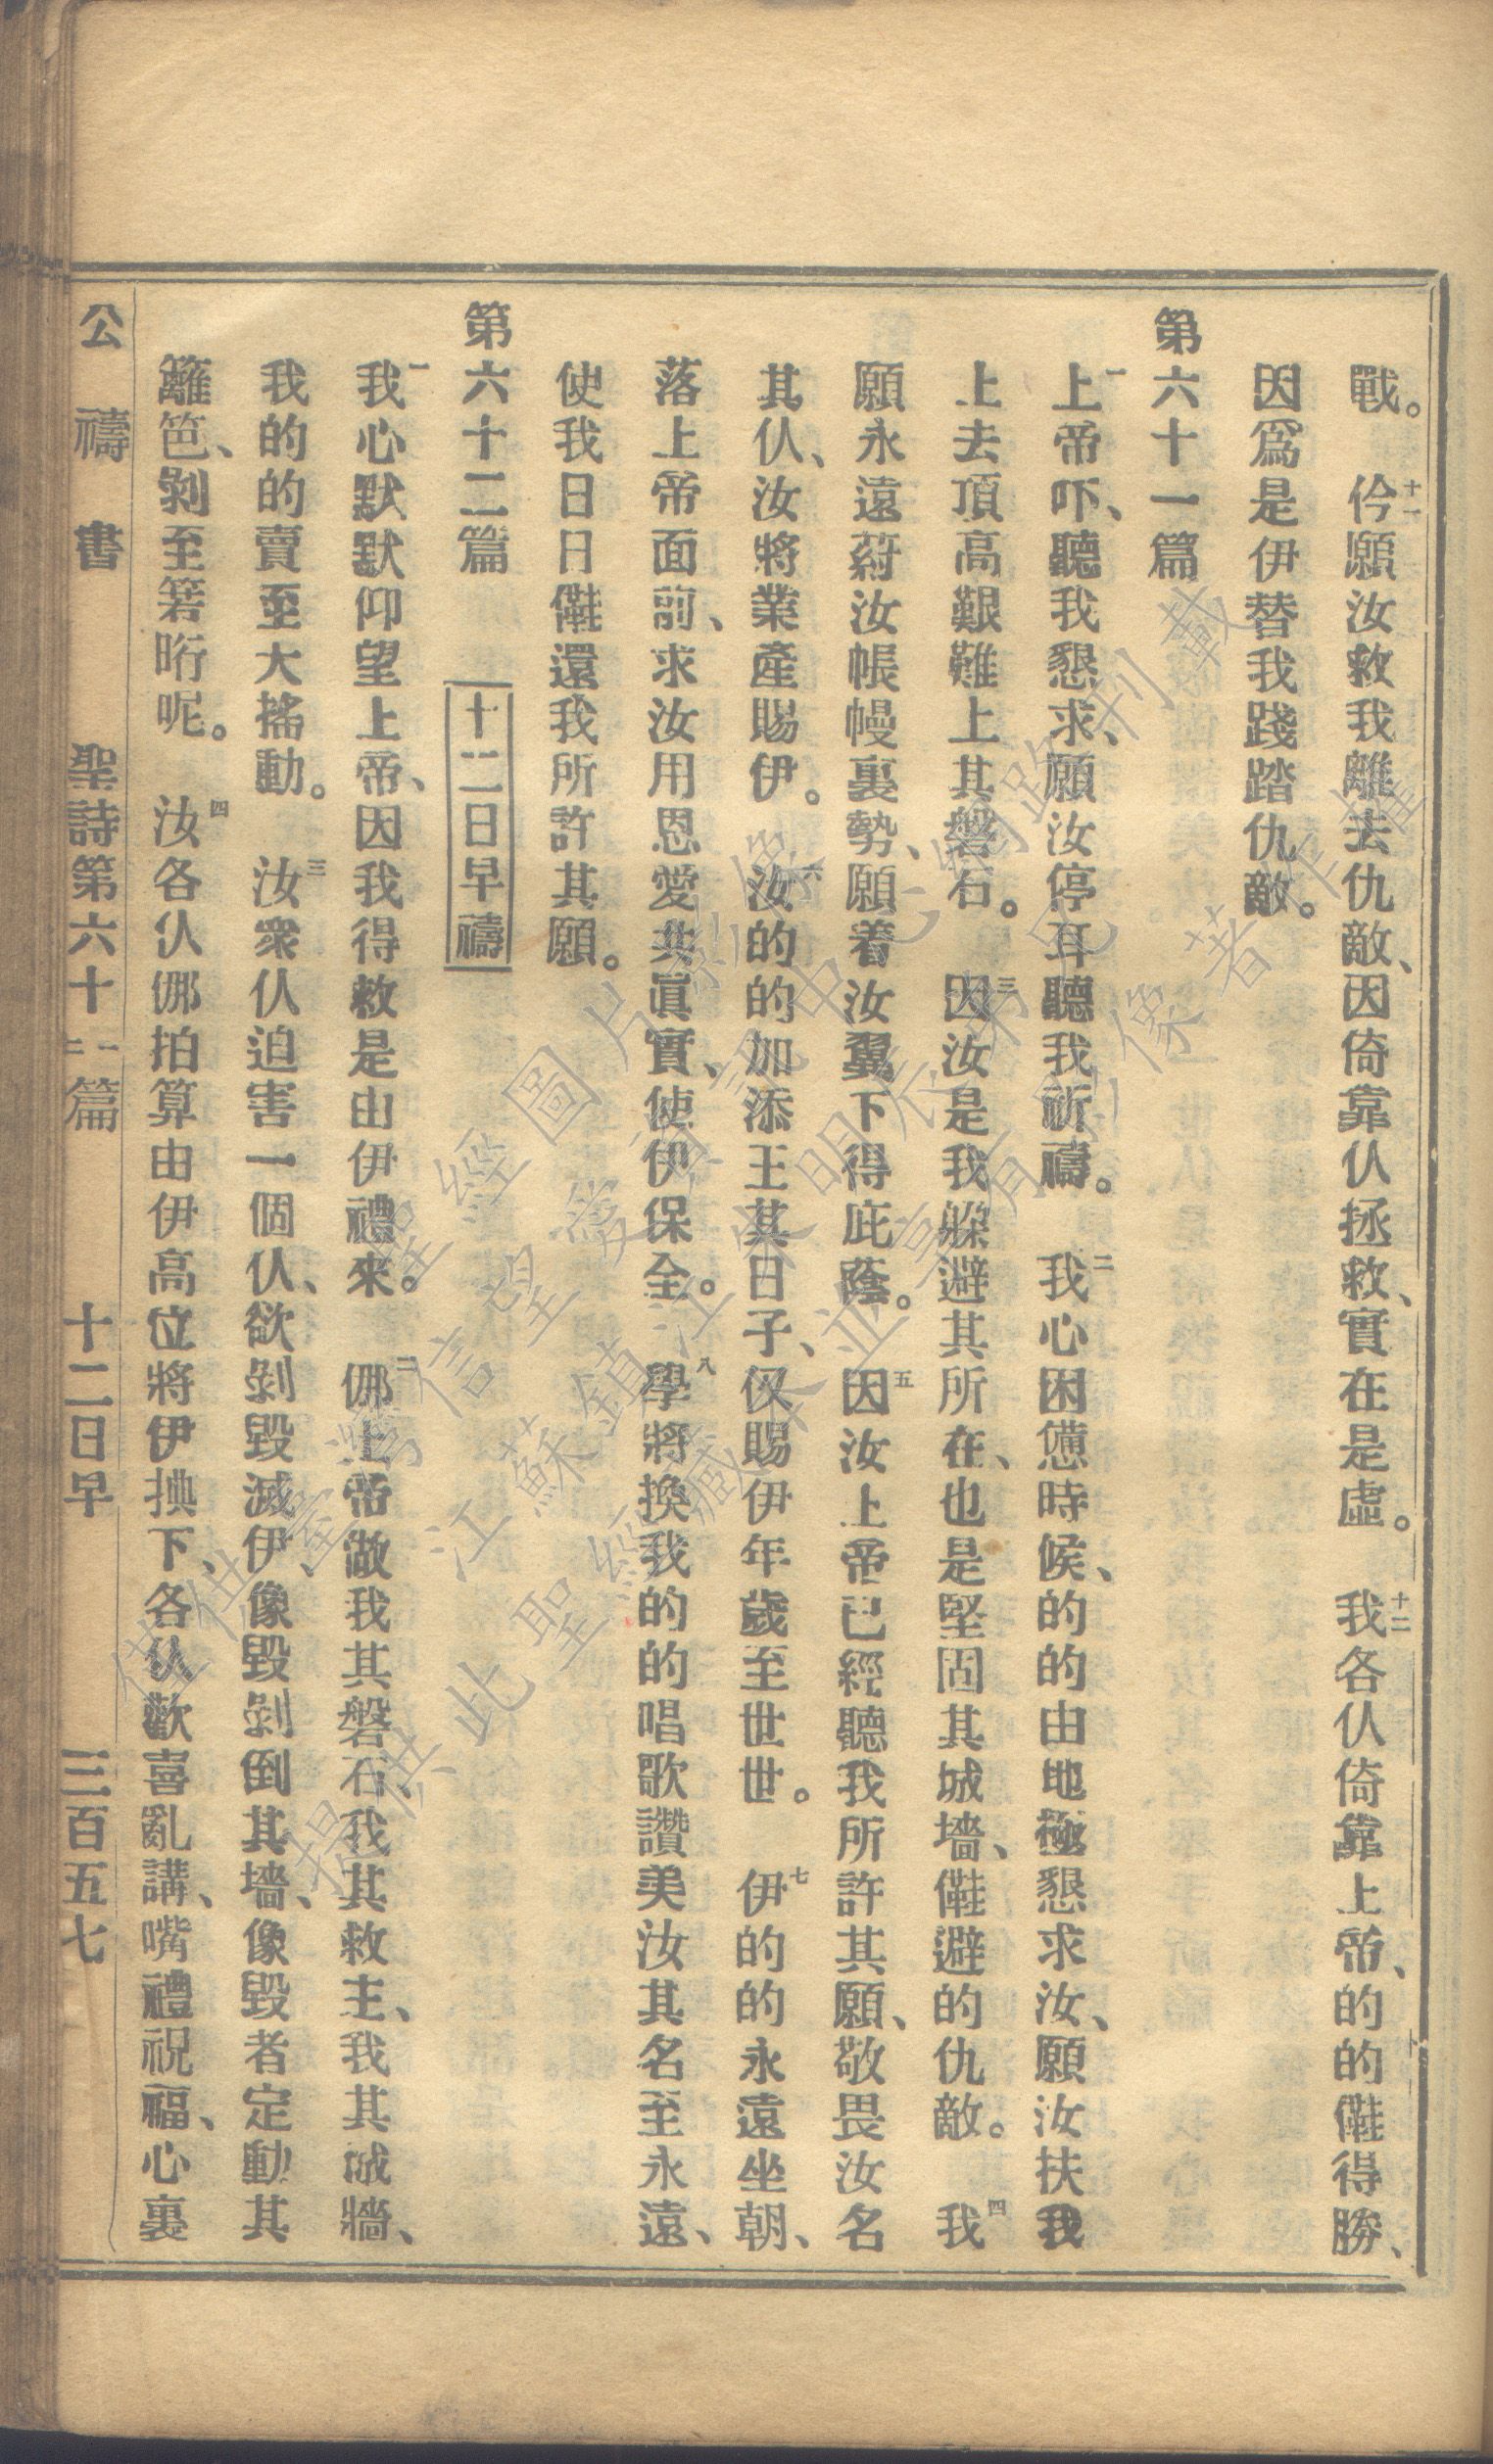 戰。十一 仱願汝救我離去仇敵、因倚靠仈拯救、實在是虛。十二 我各仈倚靠上帝、的的儺得勝、
因爲是伊替我踐踏仇敵。
第六十一篇
一 上帝吓、聽我懇求、願汝停耳聽我祈禱。二 我心困憊時候、的的由地極懇求汝、願汝扶我
上去頂高艱難上其磐石。三 因汝是我躱避其所在、也是堅固其城墻、避的仇敵。四 我
願永遠蔚汝帳幔裏勢、願着汝翼下得庇蔭。五 因汝上帝已經聽我所許其願、敬畏汝名
其仈、汝將業產賜伊。六 汝的的加添王其日子、仅賜伊年歲至世世。七 伊的的永遠坐朝、
落上帝面前、求汝用恩愛共眞實、使伊保全。八 學將換我的的唱歌讚美汝其名至永遠、
使我日日還我所許其願。
第六十二篇 十二日早禱
一 我心默默仰望上帝、因我得救是由伊禮來。二 㑚上帝做我其磐石、我其救主、我其城牆、
我的的賣至大搖動。三 汝衆仈迫害一個仈、欲剝毀滅伊、像毀剝倒其墻、像毀者定動其
籬笆、剝至箬呢。四 汝各仈㑚拍算由伊高位將伊㨆下、各仈歡喜亂講、嘴禮祝福、心裏
公禱書 聖詩第六十一二篇 十二日早 三百五七
聖經圖片影像